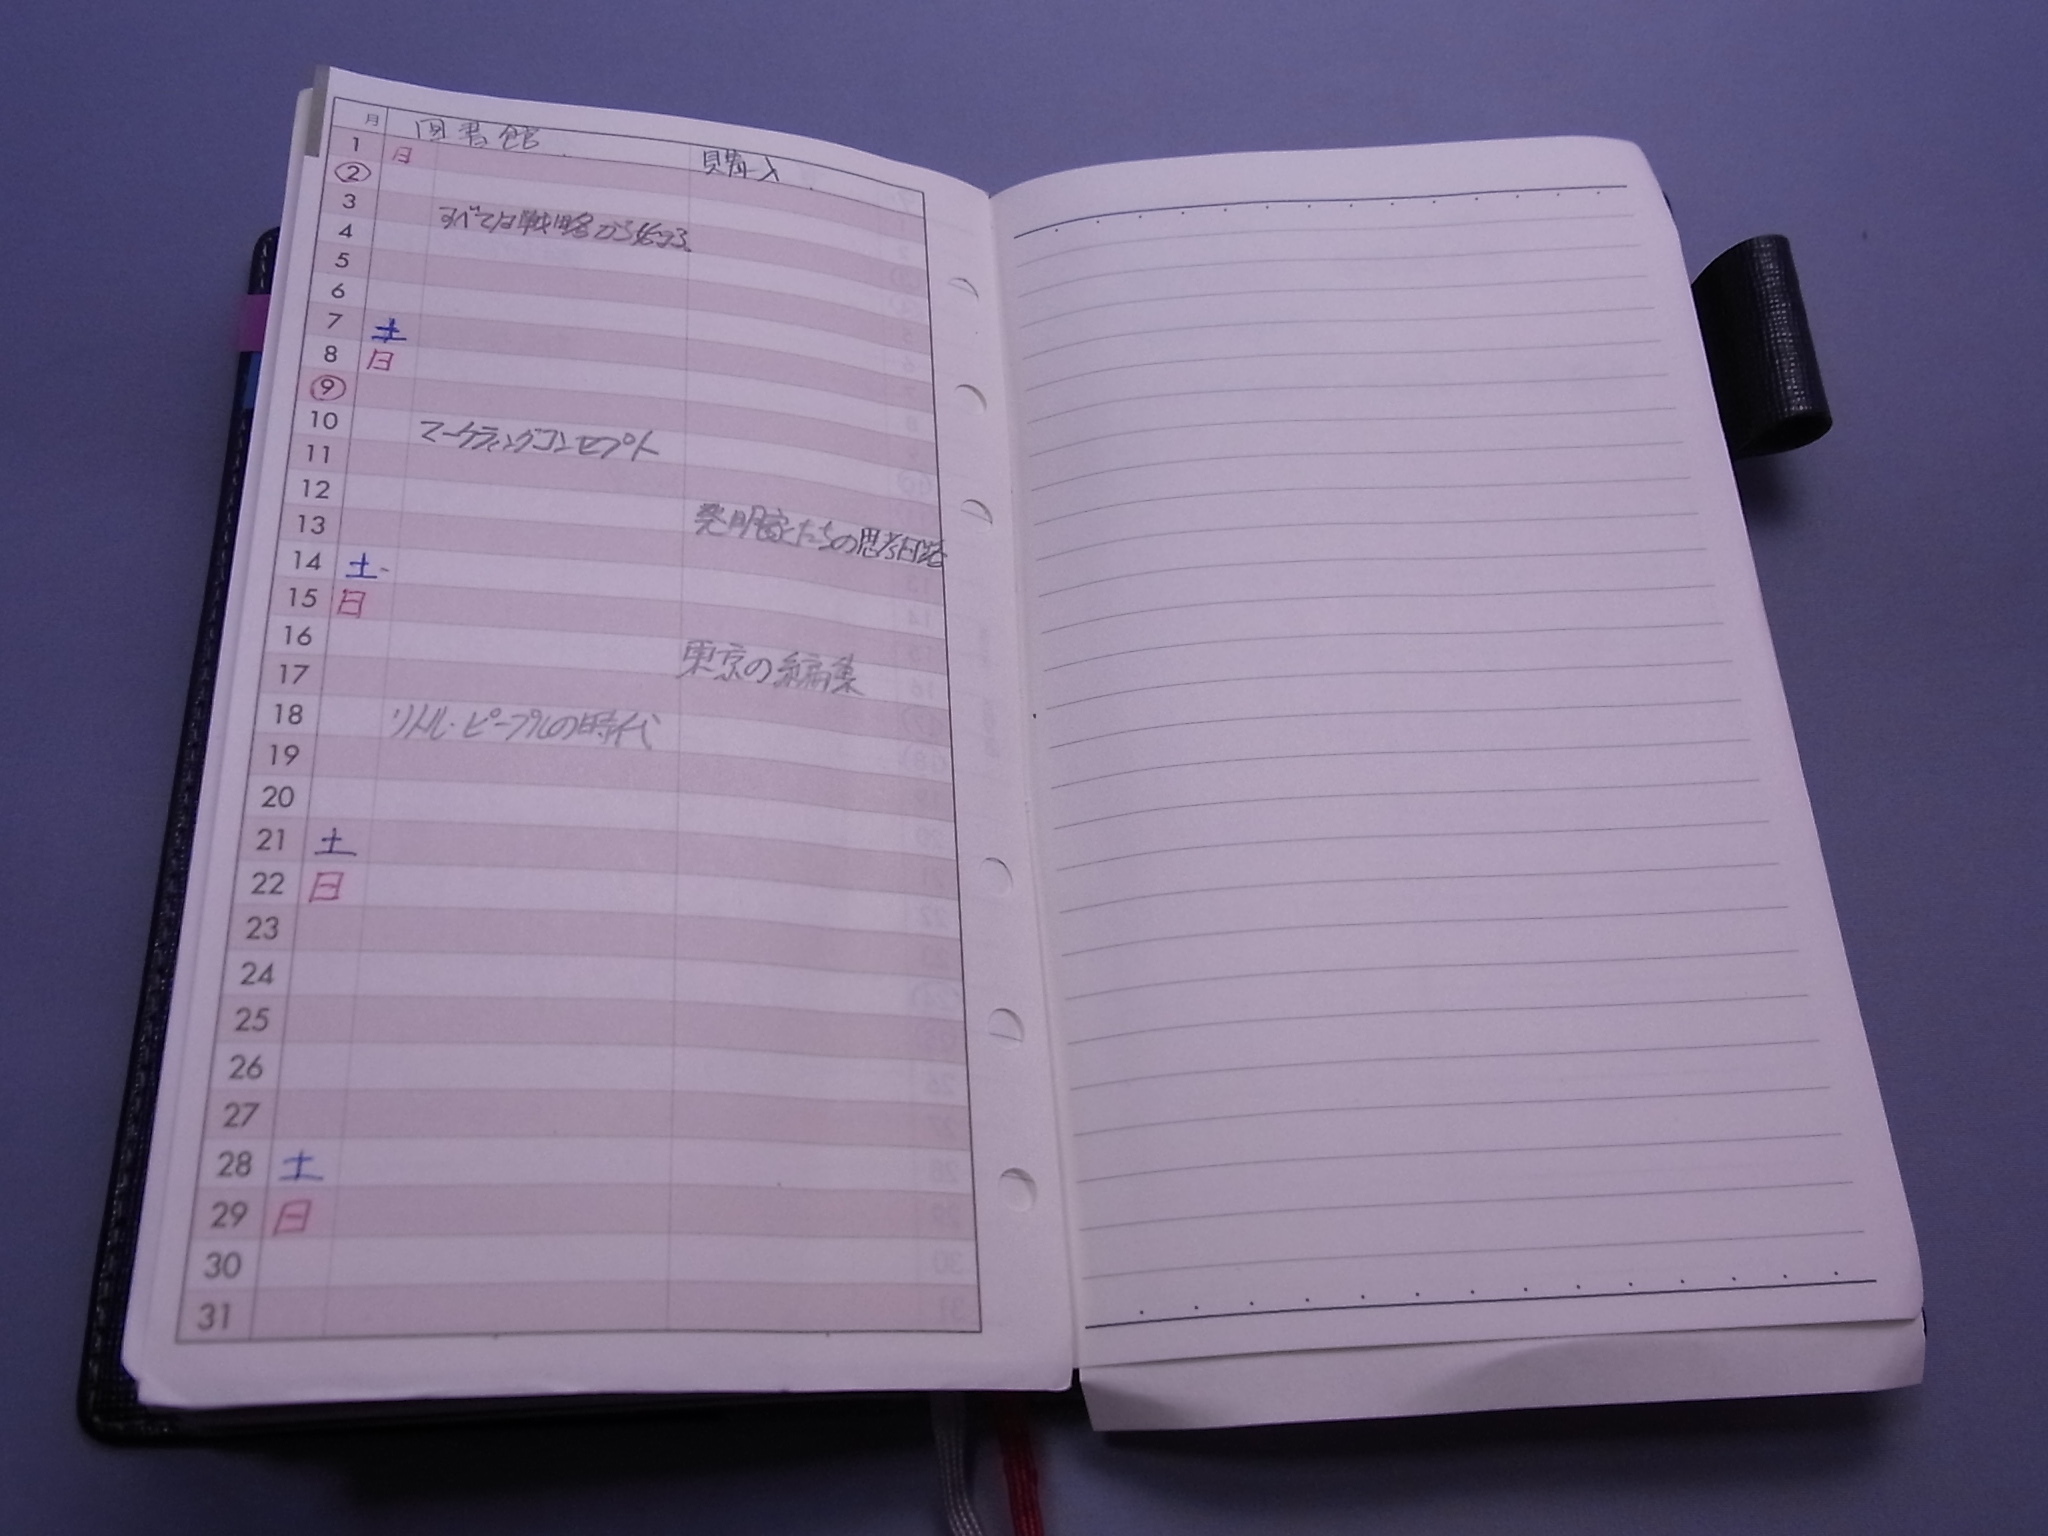 月 図書館 購入
1 日
2
3 すべては戦略から始まる
4
5
6
7 土
8 日
9
10 マーケティングコンセプト
11
12
13 発明家たちの思考回路
14 土
15 日
16
17 東京の編集
18 リトル・ピープルの時代
19
20
21 土
22 日
23
24
25
26
27
28 土
29 日
30
31